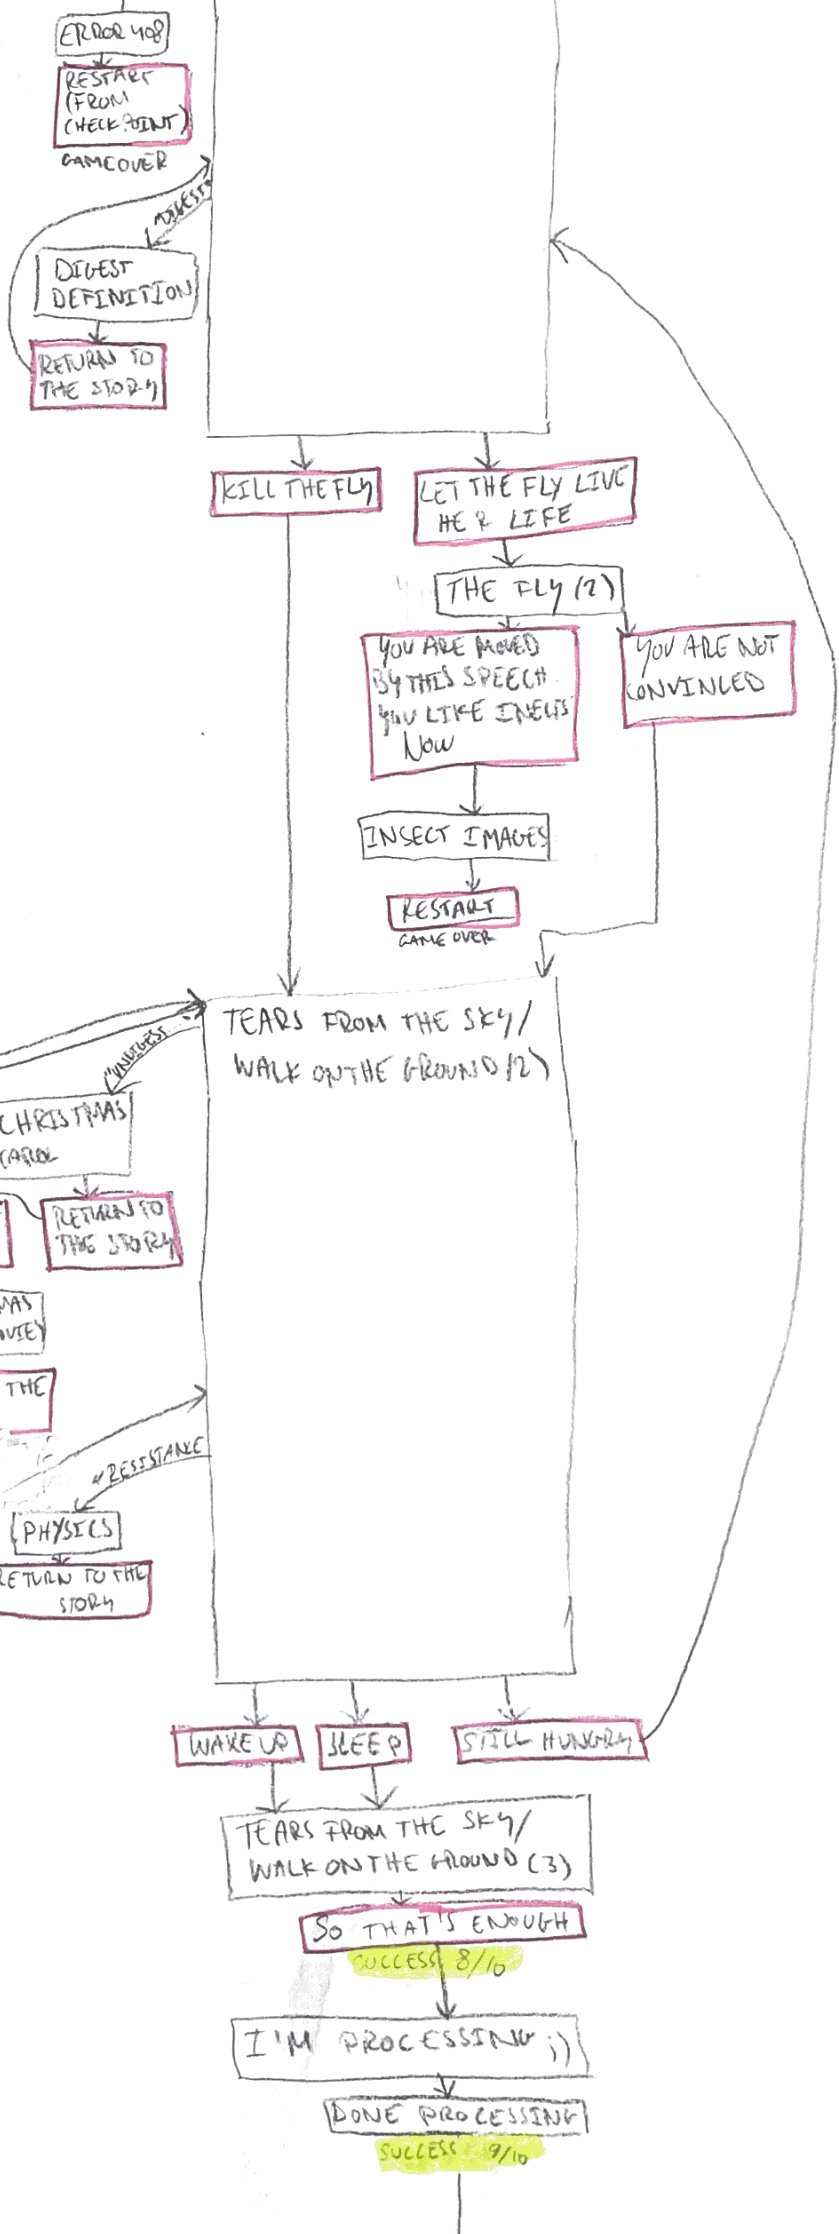 ERROR 408
RESTART
(FROM
CHECKPOINT)
GAME OVER
"DIGEST"
DIGEST
DEFINITION
RETURN TO
THE STORY
KILL THE FLY
LET THE FLY LIVE
HER LIFE
THE FLY (2)
YOU ARE MOVED
BY THIS SPEECH.
YOU LIKE INECTS
NOW
YOU ARE NOT
CONVINCED
INSECT IMAGES
RESTART
GAME OVER
TEARS FROM THE SKY/
WALK ON THE GROUND (2)
"UNDIGEST"
CHRISTMAS
CAROL
RETURN TO
THE STORY
MAS
OVIE)
THE
"RESISTANCE
PHYSICS
RETURN TO THE
STORY
WAKE UP
SLEEP
STILL HUNGRY
TEARS FROM THE SKY/
WALK ON THE GROUND (3)
SO THAT'S ENOUGH
SUCCESS 8/10
I'M PROCESSING ;)
DONE PROCESSING
SUCCESS 9/10